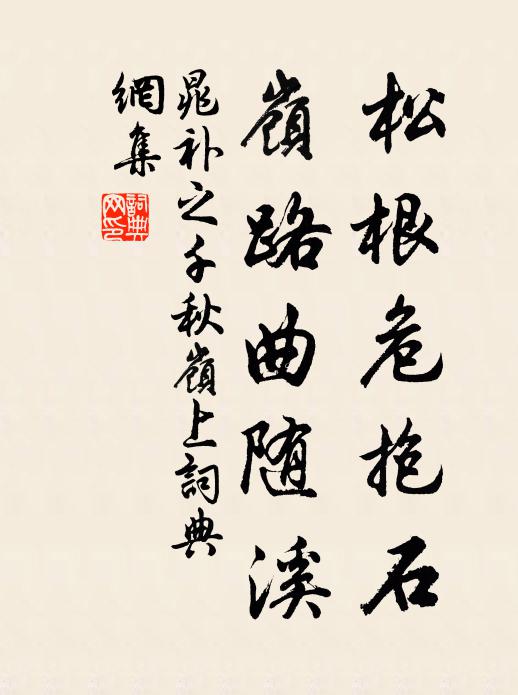 松根危抱石
嶺路曲随溪
晁补之千秋嶺上詞典
網集
詞典网印